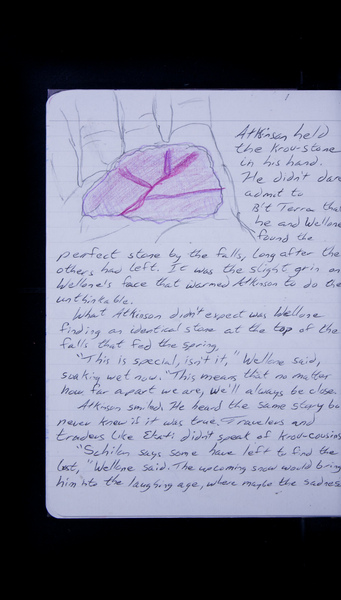 Atkinson held
the Krou-stone
in his hand.
He didn't dare
admit to
Bit Terra that
he and Wellone
found the
perfect stone by the falls, long after the
others had left. It was the slight grin on
Wellone's face that warmed Atkinson to do the
unthinkable.
What Atkinson didn't expect was Wellone
finding an identical stone at the top of the
falls that fed the spring.
"This is special, isn't it," Wellone said,
soaking wet now. "This means that no matter
how far apart we are, we'll always be close.
Atkinson smiled. He heard the same story bu
never knew if it was true. Travelers and
traders like Ekati didn't speak of Krou-cousins
"Schiln says some have left to find the
lost," Wellone said. The upcoming snow would bring
him into the laughing age, where maybe the sadness